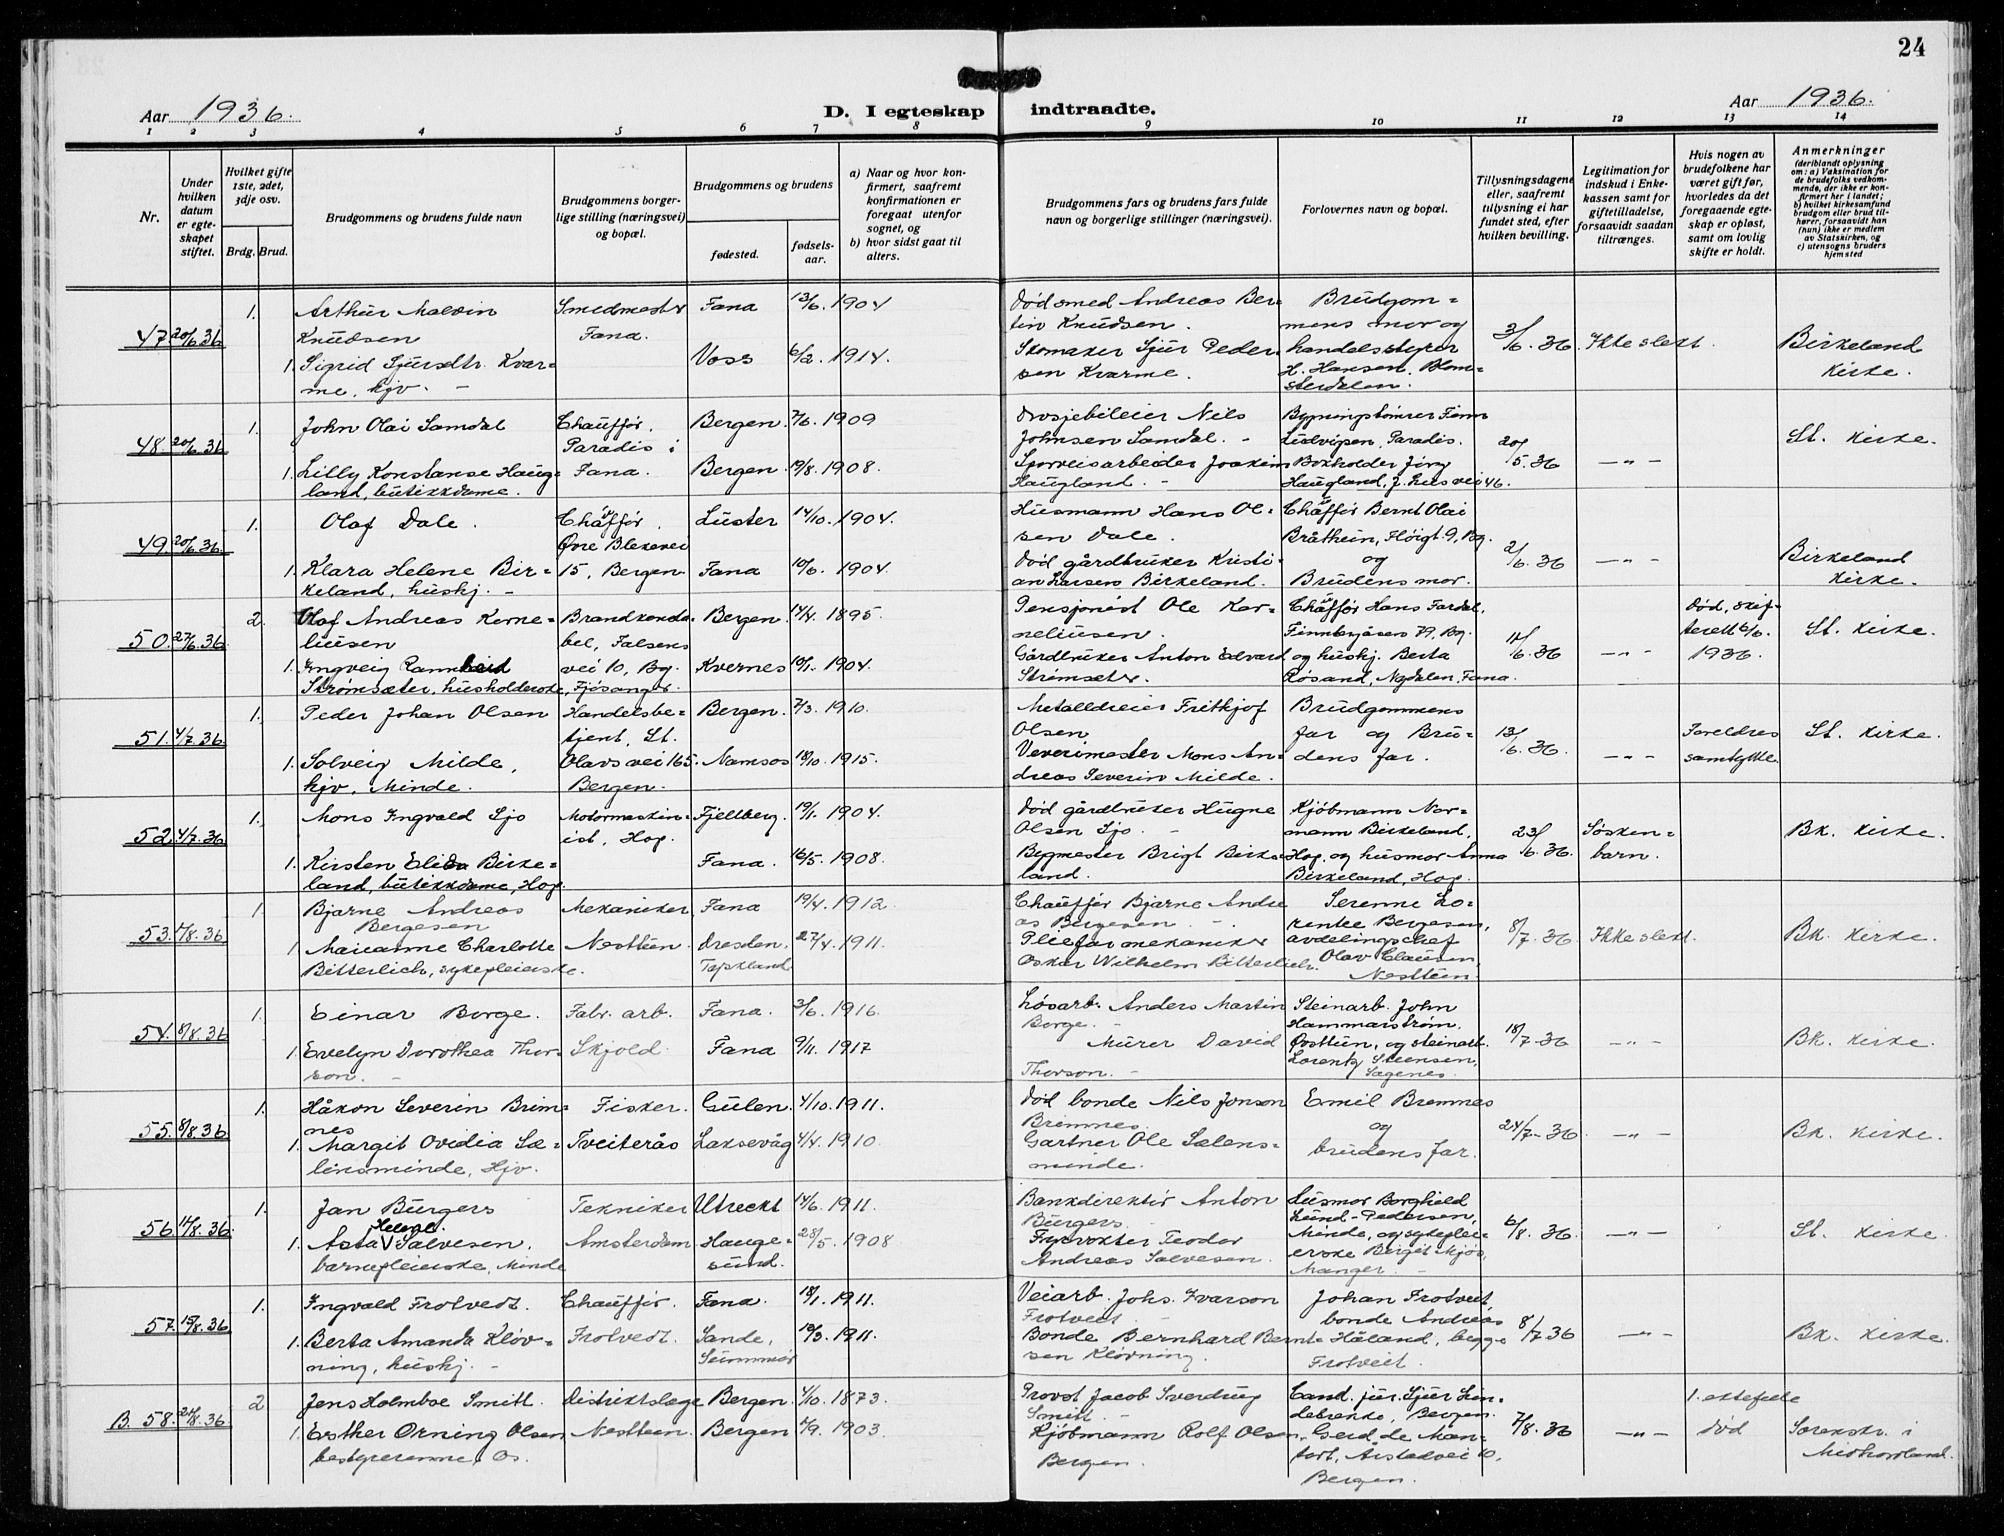 24
Aar 1936.
D. I egteskap indtraadte.
Aar 1936.
1 2 3 4 5 6 7 8 9 10 11 12 13 14
Nr.
Under hvilken datum er egteskapet stiftet.
Hvilket gifte 1ste, 2det, 3dje osv.
Brdg. Brud.
Brudgommens og brudens fulde navn
Brudgommens borgerlige stilling (næringsvei) og bopæl.
Brudgommens og brudens
fødested.
fødselsaar.
a) Naar og hvor konfirmert, saafremt konfirmationen er foregaat utenfor sognet, og
b) hvor sidst gaat til alters.
Brudgommens fars og brudens fars fulde navn og borgerlige stillinger (næringsvei).
Forlovernes navn og bopæl.
Tillysningsdagene eller, saafremt tillysning ei har fundet sted, efter hvilken bevilling.
Legitimation for indskud i Enkekassen samt for giftetilladelse, forsaavidt saadan tiltrænges.
Hvis nogen av brudefolkene har været gift før, hvorledes da det foregaaende egteskap er opløst, samt om lovlig skifte er holdt.
Anmerkninger
(deriblandt oplysning om: a) Vaksination for de brudefolks vedkommende, der ikke er konfirmert her i landet; b) hvilket kirkesamfund brudgom eller brud tilhører, forsaavidt han (hun) ikke er medlem av Statskirken, og c) utensogns bruders hjemsted
47. 20/6.36 1. Arthur Malvin Knudsen Smedmester Fana. Fana 13/6. 1904 Død smed Andreas Bertin Knudsen. Brudgommens mor og handelsstyrer H. Hansen. Blomsterdalen. 3/6.36 Ikke slekt. Birkeland Kirke.
1. Sigrid Sjursdtr. Kvarme, hjv. Voss 6/2. 1914. Skomaker Sjur Pedersen Kvarme.
48. 20/6.36 1. John Olai Samdal Chauffør. Paradis i Fana. Bergen. 7/6. 1909 Drosjebileier Nils Johnsen Samdal. Bygningstømrer Finn Ludvigsen, Paradis. Boxholder Jørg Haugland, J. Lies vei 46. 20/5.36 —"— St. Kirke.
1. Lilly Konstanse Haugland, butikkdame. Bergen. 19/8. 1908. Sporveisarbeider Joakim Haugland.
49. 20/6.36 1. Olaf Dale. Chauffør. Øvre Blekevei 15, Bergen Luster 14/10. 1904. Husmann Hans Olsen Dale. Chauffør Bernt Olai Bråthein, Høigt. 9, Bg. og Brudens mor. 2/6.36 —"— Birkeland Kirke.
1. Klara Helene Birkeland, huskj. Fana 10/6. 1904. Død gårdbruker Kristian Larsen Birkeland.
50. 27/6.36 2. Olaf Andreas Kornelius­en Brandkonstabel, Falsens vei 10, Bg. Bergen. 14/4. 1895. Pensjonist Ole Korneliusen. Chauffør Hans Fardal, Finnbergåsen 79, Bg. og huskj. Berta Røsand, Nydalen, Fana. 11/6.36 —"— død, skifterett 6/6. 1936. St. Kirke.
1. Ingveig Rannheid Strømsæter, husholderske, Fjøsanger. Kvernes 10/1. 1904. Gårdbruker Anton Edvard Strømsæter.
51. 4/7.36 1. Peder Johan Olsen Handelsbetjent, St. Olavs vei 165. Bergen. Bergen. 2/3. 1910. Metalldreier Fritkjof Olsen Brudgommens far og Brudens far. 13/6.36. —"— Foreldres samtykke. St. Kirke.
1. Solveig Milde, hjv. Minde. Namsos 18/10. 1915. Veverimester Mons Andreas Severin Milde.
52. 4/7.36 1. Mons Ingvald Sjo Motormaskinist, Hop. Fjellberg. 19/1. 1904. Død gårdbruker Hugne Olsen Sjo. Kjøbmann Normann Birkeland, Hop, og husmor Anna Birkeland, Hop. 23/6.36. Søskenbarn. Bk. Kirke.
1. Kirsten Elida Birkeland, butikkdame, Hop. Fana. 16/5. 1908. Bygmester Brigt Birkeland.
53. 1/8.36 1. Bjarne Andreas Bergesen Mekaniker, Nesttun. Fana 19/4. 1912 Chauffør Bjarne Andreas Bergesen Serenne Lorentse Bergesen, avdelingschef Olav Clausen, Nesttun. 8/7.36 Ikke slekt. Bk. Kirke.
1. Marianne Charlotte Bitterlich, sykepleierske. Dresden. Tyskland 27/4. 1911. Oskar Wilhelm Bitterlich.
54. 8/8.36 1. Einar Borge. Fabr. arb. Skjold. Fana. 3/6. 1916. Løsarb. Anders Martin Borge. Steinarb. John Hammarstrøm. Østtun, og steinarb. Lorentz Steensen, Sagenes. 18/7.36 —"— Bk. Kirke.
1. Evelyn Dorothea Thorson. Fana 9/11. 1917 Murer David Thorson.
55. 8/8.36 1. Håkon Severin Brimnes Fisker. Tveiterås Gulen. 4/10. 1911. Død bonde Nils Jonson Brimnes. Emil Bremnes og brudens far. 24/7.36 —"— Bk. Kirke.
1. Margit Ovidia Sælensminde, Hjv. Laksevåg 4/4. 1910. Gartner Ole Sælensminde.
56. 14/8.36. 1. Jan Burgers Tekniker Amsterdam Utreckt 14/6. 1911. Bankdirektør Anton Burgers. Husmor Borghild Lund-Pedersen, Minde, og sykepleierske Birgit Mjøs, Manger. 6/8.36 —"— St. Kirke.
1. Asta Helene Salvesen, barnepleierske, Minde Haugesund. 28/5. 1908 Fyrvokter Teodor Andreas Salvesen.
57. 15/8.36. 1. Ingvald Frotvedt. Chauffør. Frotvedt. Fana. 18/1. 1911. Veiarb. Johs. Ivarson Frotveit Johan Frotveit, bonde Andreas Håland, begge Frotveit. 8/7.36 —"— Bk. Kirke.
1. Berta Amanda Kløvning, huskj. Sande, Sunnmør 19/3. 1911. Bonde Bernhard Berntsen Kløvning.
B. 58. 24/8.36 2 Jens Holmboe Smitt. Distriktslæge Nesttun. Bergen. 4/10. 1873. Provst Jacob Sverdrup Smitt. Cand. jur. Sjur Lindebrekke, Bergen. Gerd de Manfort, Årstadvei 10, Bergen. 7/8.36 —"— 1. ektefelle død Sorenskr. i Midhordland.
1. Esther Orning Olsen bestyrerinne, Os. Bergen 4/9. 1903. Kjøbmann Rolf Olsen, Bergen.